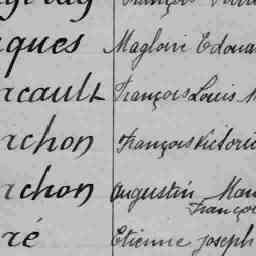 ques Magloire Edoua
cault François Louis M
rchon François Victori
rchon Augustin Mau
Françoi
ré Etienne Joseph